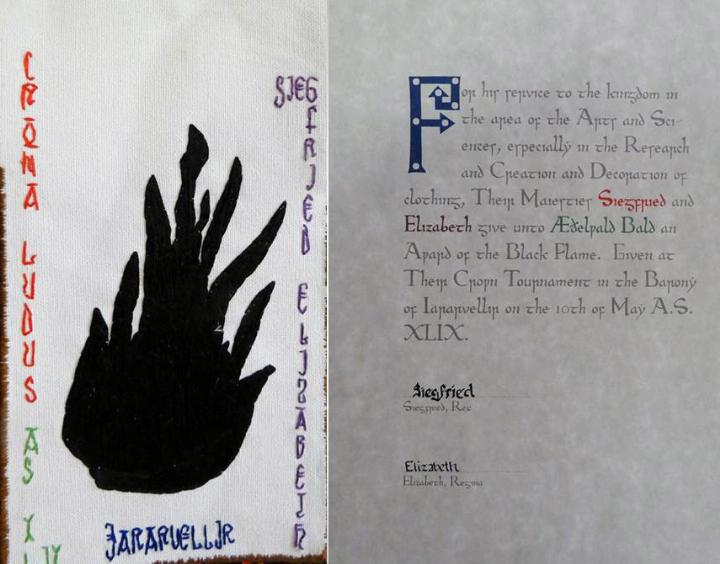 CRONA LUDUS AS
SIEGFRIED ELIZABETH
JARARVELLIR
For his service to the kingdom in
the area of the Arts and Sci-
ences, especially in the Research
and Creation and Decoration of
clothing, Their Maiesties Siegfried and
Elizabeth give unto Æðelƿald Bald an
Aƿard of the Black Flame. Given at
Their Croƿn Tournament in the Barony
of Iararvellir on the 10th of May A.S.
XLIX.
Siegfried
Siegfried, Rex
Elizabeth
Elizabeth, Regina